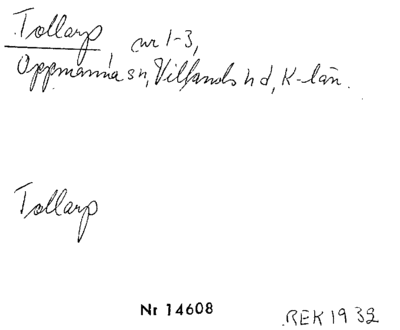 Tollarp, nr 1-3,
Oppmanna sn, Villands hd, K-län.
Tollarp
Nr 14608
REK 1932